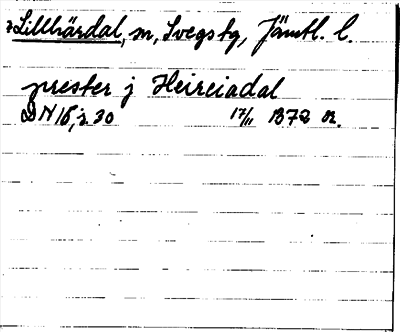 Lillhärdal, m, Svegs tg, Jämtl. l.
prester j Heireiadal
DN 15, s. 30 17/11 1372 or.